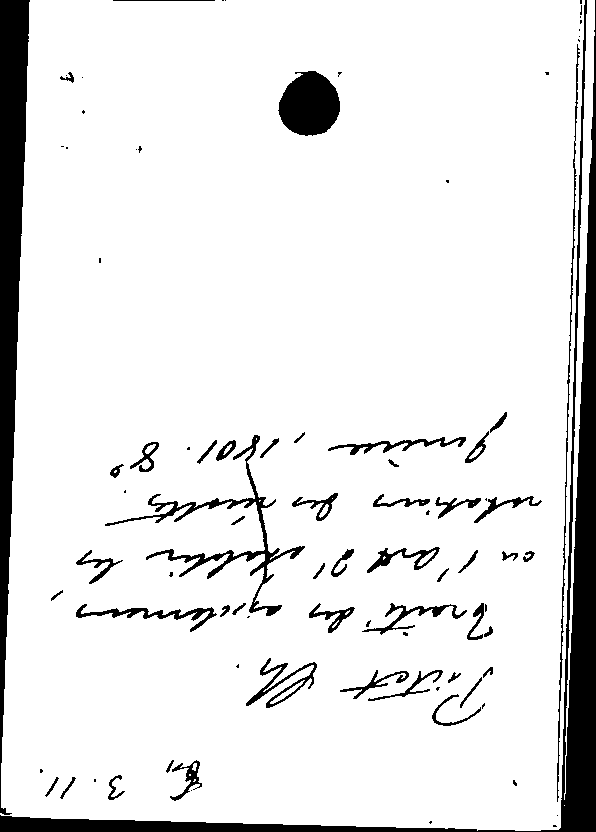 3.11.
Pictet Ch.
Traité des assolemens,
ou l'art d'établir les
rotations des récoltes
Genève, 1801. 8°